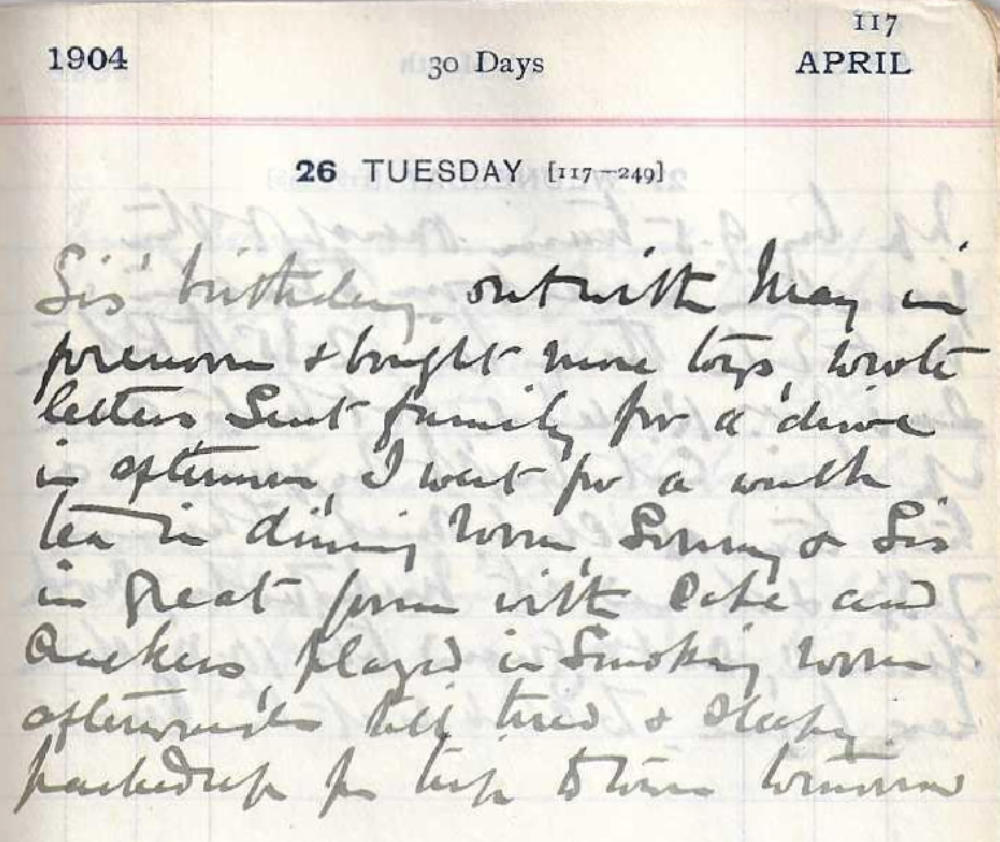 117
1904 30 Days APRIL
26 TUESDAY [117-249]
Sis' birthday. out with May in
forenoon & bought more toys, wrote
letters Sent family for a drive
in afternoon, I went for a walk
tea in dining room, Sonny & Sis
in great form with Cake and
Crackers, played in Smoking room
afterwards till tired & sleepy.
packed up for trip to town tomorrow